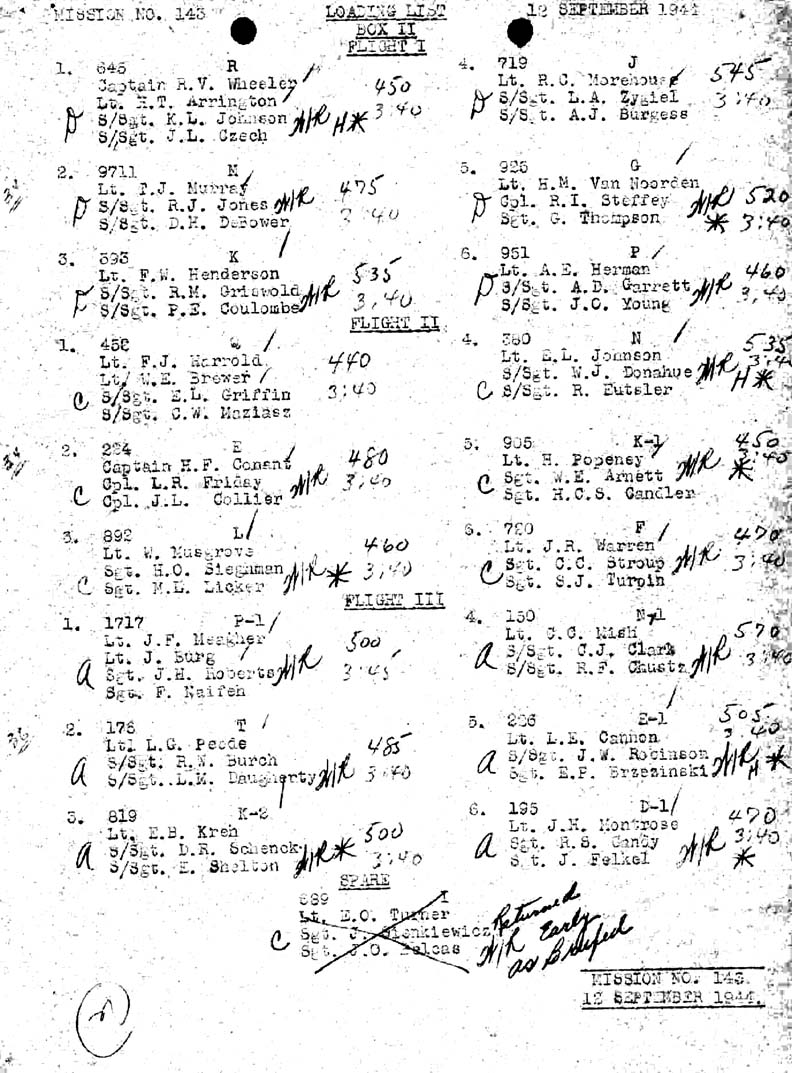 MISSION NO. 143 LOADING LIST 12 SEPTEMBER 1944
BOX II
FLIGHT I
1. 645 R
Captain R.V. Wheeler 450
Lt. H.T. Arrington
D S/Sgt. K.L. Johnson N/R H* 3:40
S/Sgt. J.L. Czech
4. 719 J
Lt. R.C. Morehouse 545
D S/Sgt. L.A. Zygiel 3:40
S/Sgt. A.J. Burgess
2. 9711 M
Lt. F.J. Murray 475
D S/Sgt. R.J. Jones N/R
S/Sgt. D.H. DeBower 3:40
5. 925 G
Lt. H.M. Van Noorden
D Cpl. R.I. Steffey N/R 520
Sgt. G. Thompson * 3:40
3. 393 K
Lt. F.W. Henderson 535
S/Sgt. R.M. Griswold N/R
S/Sgt. P.E. Coulombe 3:40
6. 951 P
Lt. A.E. Herman 460
D S/Sgt. A.D. Garrett N/R
S/Sgt. J.O. Young 3:40
FLIGHT II
1. 458
Lt. F.J. Harrold 440
Lt/ W.E. Brewer
C S/Sgt. E.L. Griffin 3:40
S/Sgt. C.W. Maziasz
4. 380 N 535
Lt. E.L. Johnson 3:40
S/Sgt. W.J. Donahue N/R H*
C S/Sgt. R. Eutsler
2. 224 E
Captain H.F. Conant 480
Cpl. L.R. Friday N/R 3:40
C Cpl. J.L. Collier
5. 905 K-1 450
Lt. H. Popeney 3:45
C Sgt. W.E. Arnett N/R *
Sgt. H.C.S. Candler
3. 892 L
Lt. W. Musgrove 460
Sgt. H.O. Sieghman N/R * 3:40
C Sgt. M.L. Licker
6. 720 F
Lt. J.R. Warren 470
C Sgt. C.C. Stroup N/R 3:40
Sgt. S.J. Turpin *
FLIGHT III
1. 1717 P-1
Lt. J.F. Meagher 500
Lt. J. Burg
A Sgt. J.H. Roberts N/R 3:45
Sgt. F. Naifeh
4. 150 N-1
Lt. C.C. Mish 570
A S/Sgt. C.J. Clark N/R
S/Sgt. R.F. Chustz 3:40
2. 178 T
Ltl L.G. Peede
A S/Sgt. R.W. Burch 485
S/Sgt. L.M. Daugherty N/R 3:40
5. 226 E-1 505
Lt. L.E. Cannon 3:40
A S/Sgt. J.W. Robinson N/R *
Sgt. E.P. Brzezinski H
3. 819 K-2
Lt. E.B. Kreh 500
A S/Sgt. D.R. Schenck N/R *
S/Sgt. E. Shelton 3:40
6. 195 D-1
Lt. J.H. Montrose 470
A Sgt. R.S. Candy N/R 3:40
S t. J. Felkel *
SPARE
689
Lt. E.O. Turner Returned
C Sgt. J. Sienkiewicz N/R Early
Sgt. J.O. as Briefed
MISSION NO. 143.
12 SEPTEMBER 1944.